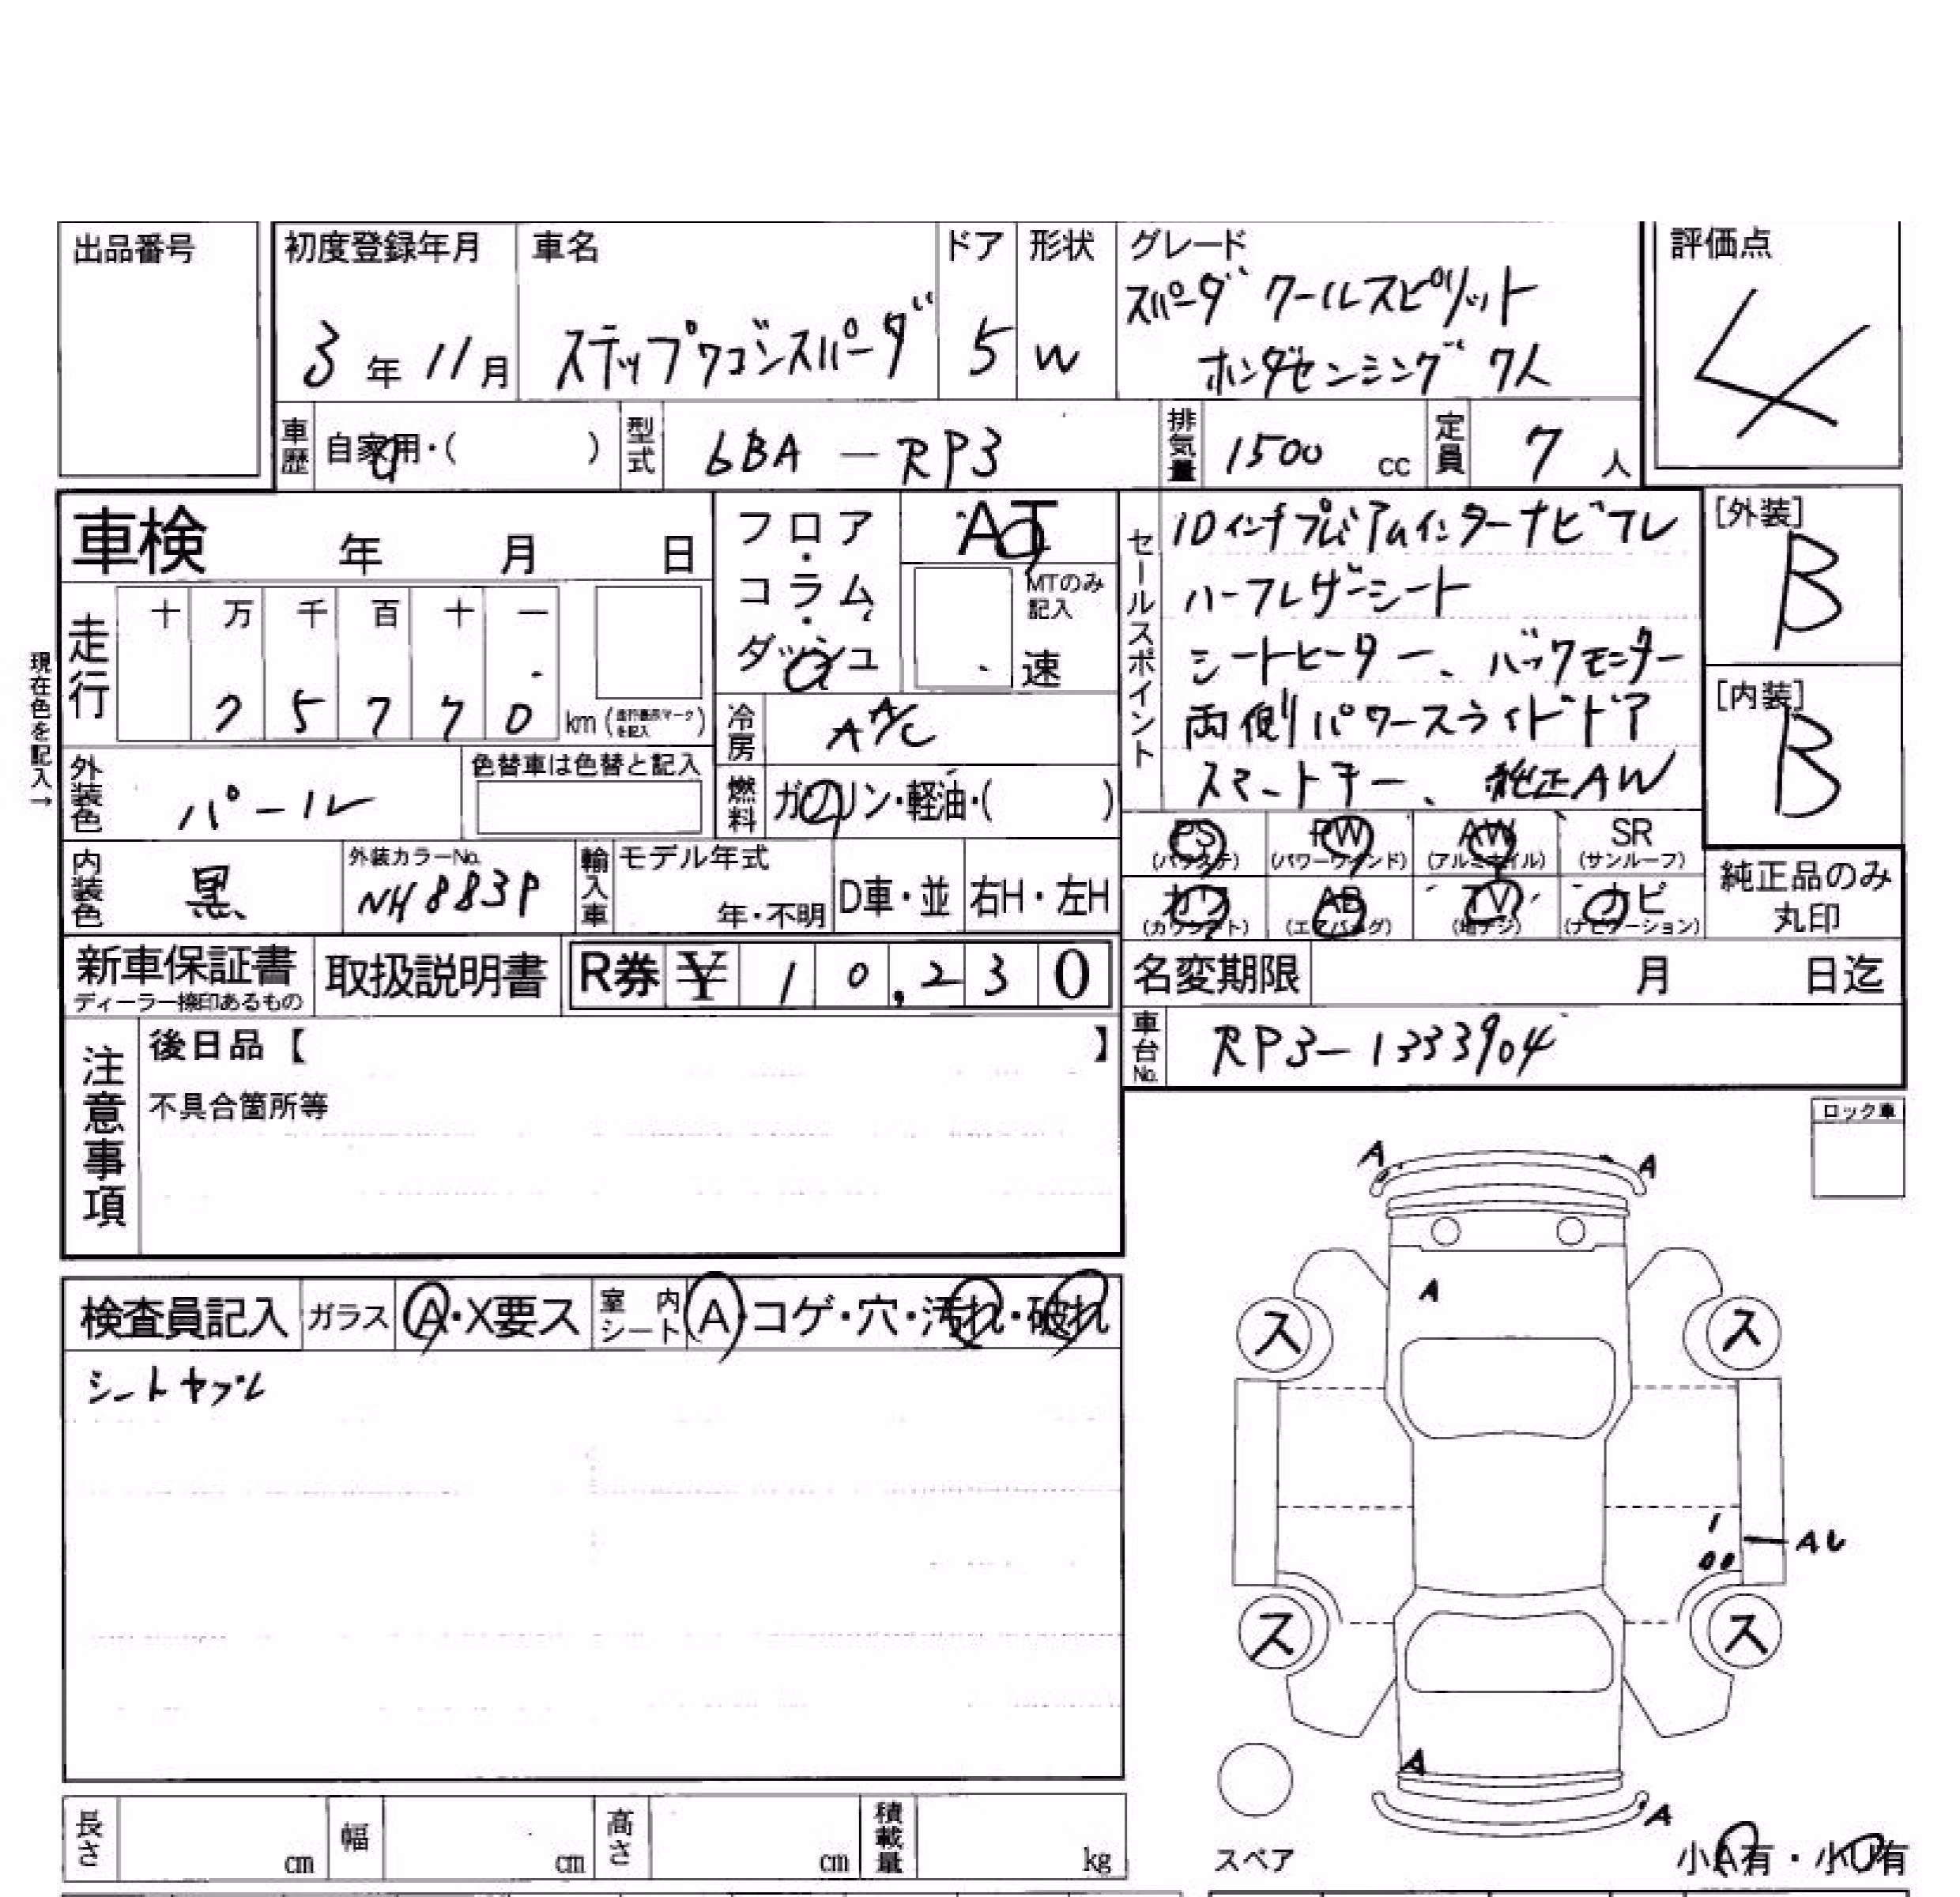 出品番号
初度登録年月
3年11月
車名
ステップワゴンスパーダ
ドア
5
形状
W
グレード
スパーダ クールスピリット
ホンダセンシング 7人
評価点
4
車歴
自家用・( )
型式
6BA-RP3
排気量
1500 cc
定員
7人
車検 年 月 日
フロア・コラム・ダッシュ
AT
MTのみ記入
速
走行
十 万 千 百 十 一
km (走行表示マークを記入)
現在色を記入→
冷房
AAC
燃料
ガソリン・軽油・( )
外装色
パール
色替車は色替と記入
内装色
黒
外装カラーNo.
NH883P
輸入車
モデル年式
年・不明
D車・並
右H・左H
セールスポイント
10インチプレミアムインターナビ フル
ハーフレザーシート
シートヒーター、バックモニター
両側パワースライドドア
スマートキー、純正AW
[外装]
B
[内装]
B
PS
(パワステ)
PW
(パワーウインド)
AW
(アルミホイル)
SR
(サンルーフ)
カワ
(カワシート)
AB
(エアバッグ)
TV
(地デジ)
ナビ
(ナビゲーション)
純正品のみ
丸印
新車保証書
ディーラー捺印あるもの
取扱説明書
R券 ¥ 10,230
名変期限 月 日迄
車台No.
RP3-1333904
注意事項
後日品【 】
不具合箇所等
ロック車
検査員記入
ガラス
A・X要ス
室内シート
A・コゲ・穴・汚れ・破れ
シートヤブレ
A
A
A
ス
ス
AU
ス
ス
A
A
スペア
小A有・小U有
長さ cm
幅 cm
高さ cm
積載量 kg